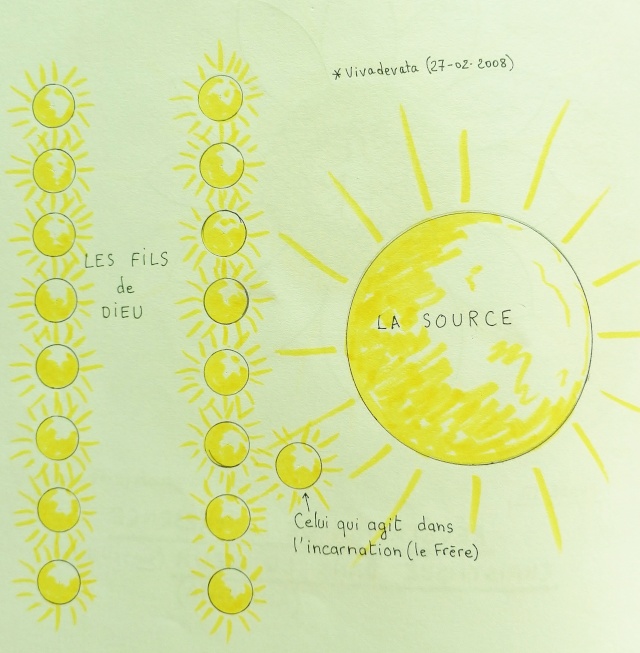 * Vivadevata (27-02-2008)
LES FiLS
de
DiEU
LA SOURCE
Celui qui agit dans
l'incarnation (le Frère)